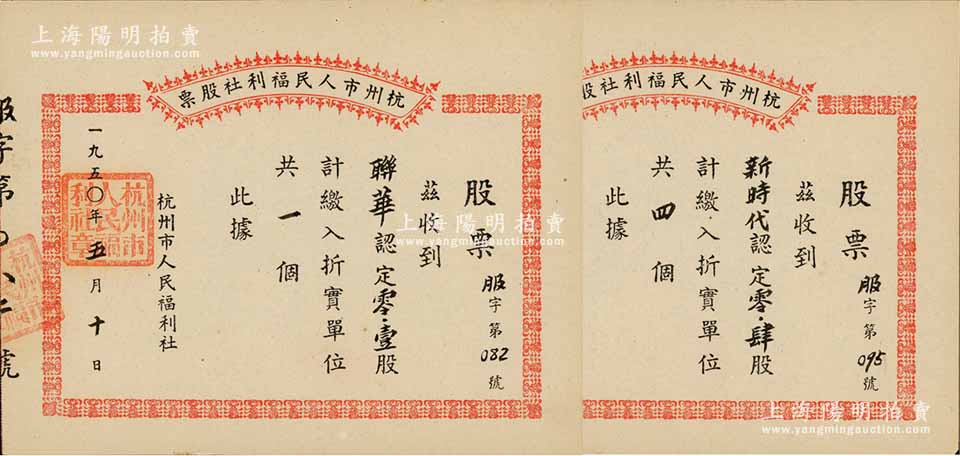 上海陽明拍賣
www.yangmingauction.com
杭州市人民福利社股票
股票
服字第082號
茲收到
聯華認定零.壹股
計繳入折實單位
共一個
此據
杭州市人民福利社
一九五〇年五月十日
杭州市人民福利社章
服字第〇八二號
杭州市人民福利社股
股票
服字第095號
茲收到
新時代認定零.肆股
計繳入折實單位
共四個
此據
上海陽明拍賣
www.yangmingauction.com
上海陽明拍賣
www.yangmingauction.com